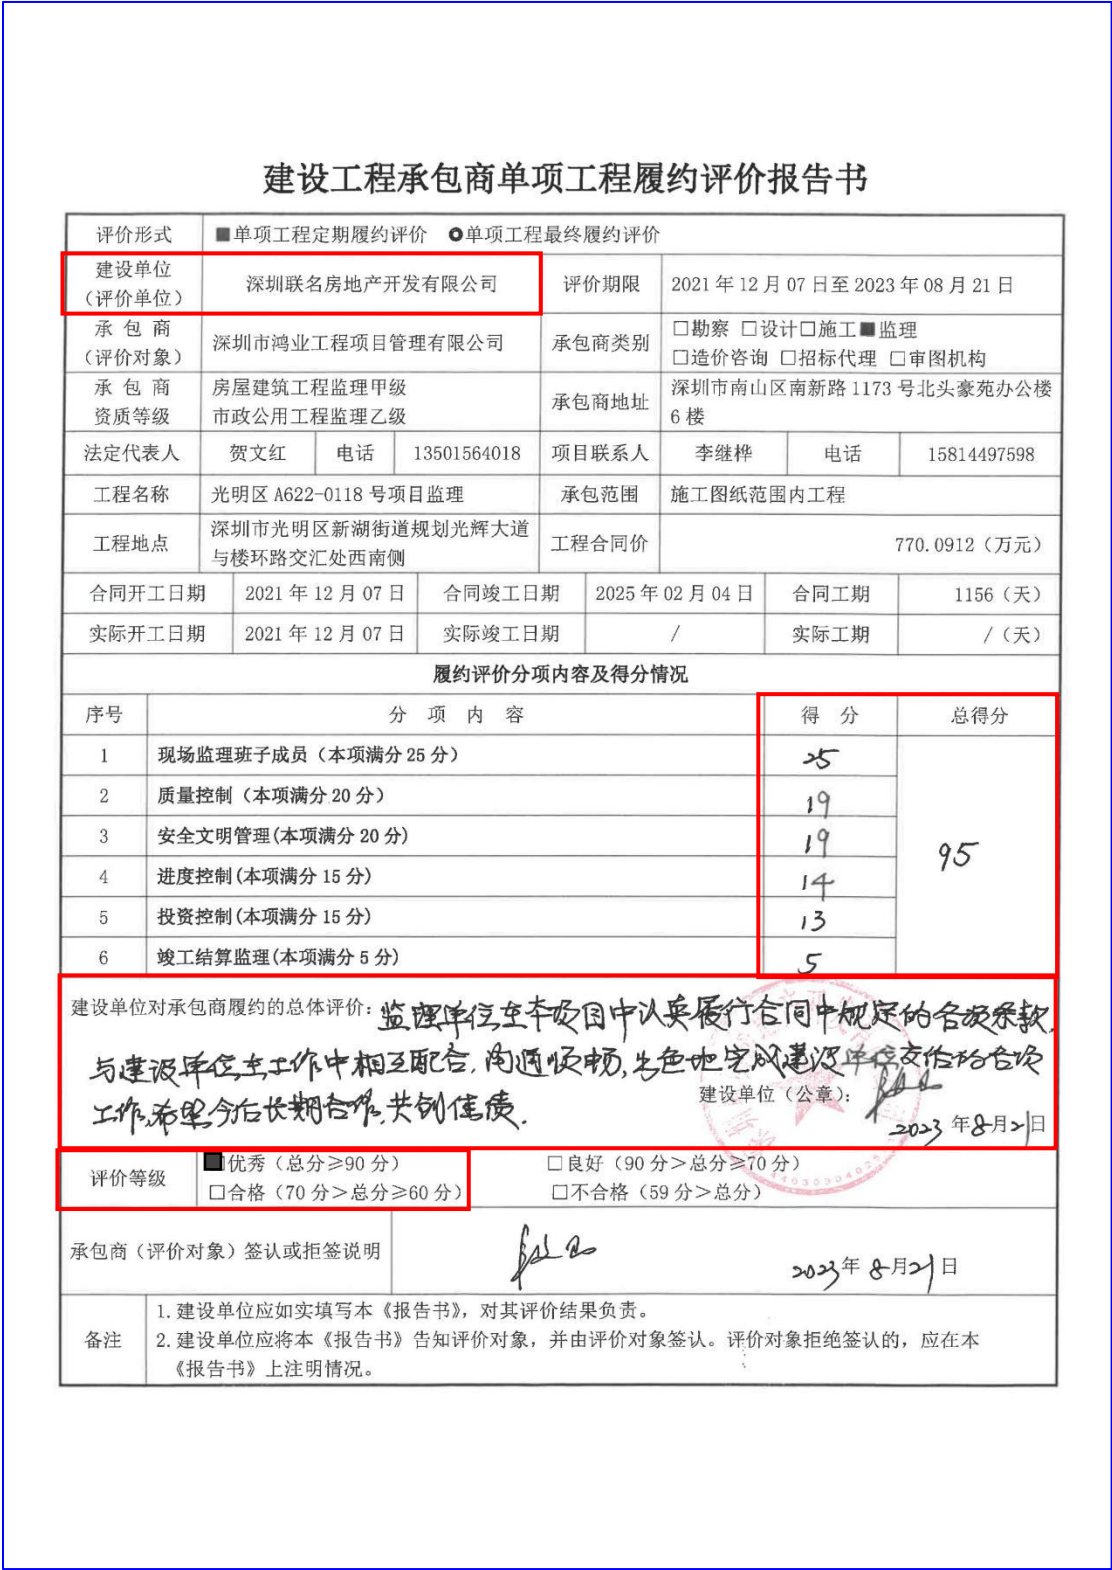 建设工程承包商单项工程履约评价报告书
评价形式 ■单项工程定期履约评价 ●单项工程最终履约评价
建设单位
（评价单位） 深圳联名房地产开发有限公司 评价期限 2021 年 12 月 07 日至 2023 年 08 月 21 日
承 包 商
（评价对象） 深圳市鸿业工程项目管理有限公司 承包商类别 □勘察 □设计□施工■监理
□造价咨询 □招标代理 □审图机构
承 包 商
资质等级 房屋建筑工程监理甲级
市政公用工程监理乙级 承包商地址 深圳市南山区南新路 1173 号北头豪苑办公楼
6 楼
法定代表人 贺文红 电话 13501564018 项目联系人 李继桦 电话 15814497598
工程名称 光明区 A622-0118 号项目监理 承包范围 施工图纸范围内工程
工程地点 深圳市光明区新湖街道规划光辉大道
与楼环路交汇处西南侧 工程合同价 770.0912（万元）
合同开工日期 2021 年 12 月 07 日 合同竣工日期 2025 年 02 月 04 日 合同工期 1156（天）
实际开工日期 2021 年 12 月 07 日 实际竣工日期 / 实际工期 /（天）
履约评价分项内容及得分情况
序号 分 项 内 容 得 分 总得分
1 现场监理班子成员（本项满分 25 分） 25
2 质量控制（本项满分 20 分） 19
3 安全文明管理(本项满分 20 分) 19
95
4 进度控制(本项满分 15 分) 14
5 投资控制(本项满分 15 分) 13
6 竣工结算监理(本项满分 5 分) 5
建设单位对承包商履约的总体评价：监理单位在本项目中认真履行合同中规定的各项条款,
与建设单位在工作中相互配合,沟通顺畅,出色地完成建设单位交给的各项
工作,希望今后长期合作,共创佳绩.
建设单位（公章）：
2023 年 8 月 21 日
评价等级 ■优秀（总分≥90 分） □良好（90 分＞总分≥70 分）
□合格（70 分＞总分≥60 分） □不合格（59 分＞总分）
承包商（评价对象）签认或拒签说明
2023 年 8 月 21 日
备注 1. 建设单位应如实填写本《报告书》，对其评价结果负责。
2. 建设单位应将本《报告书》告知评价对象，并由评价对象签认。评价对象拒绝签认的，应在本
《报告书》上注明情况。